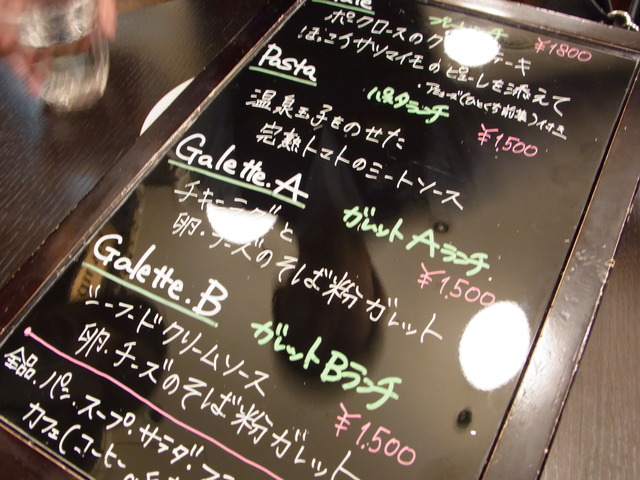 ¥1800
ポークロースの
ほっこりサツマイモのピューレを添えて
アミューズ(ひとくち前菜)付き
Pasta パスタランチ ¥1,500
温泉玉子をのせた
完熟トマトのミートソース
Galette.A ガレットAランチ ¥1,500
チキン と
卵・チーズのそば粉ガレット
Galette.B ガレットBランチ ¥1,500
シーフードクリームソース
卵・チーズのそば粉ガレット
全品、パン・スープ・サラダ・
カフェ(コーヒー